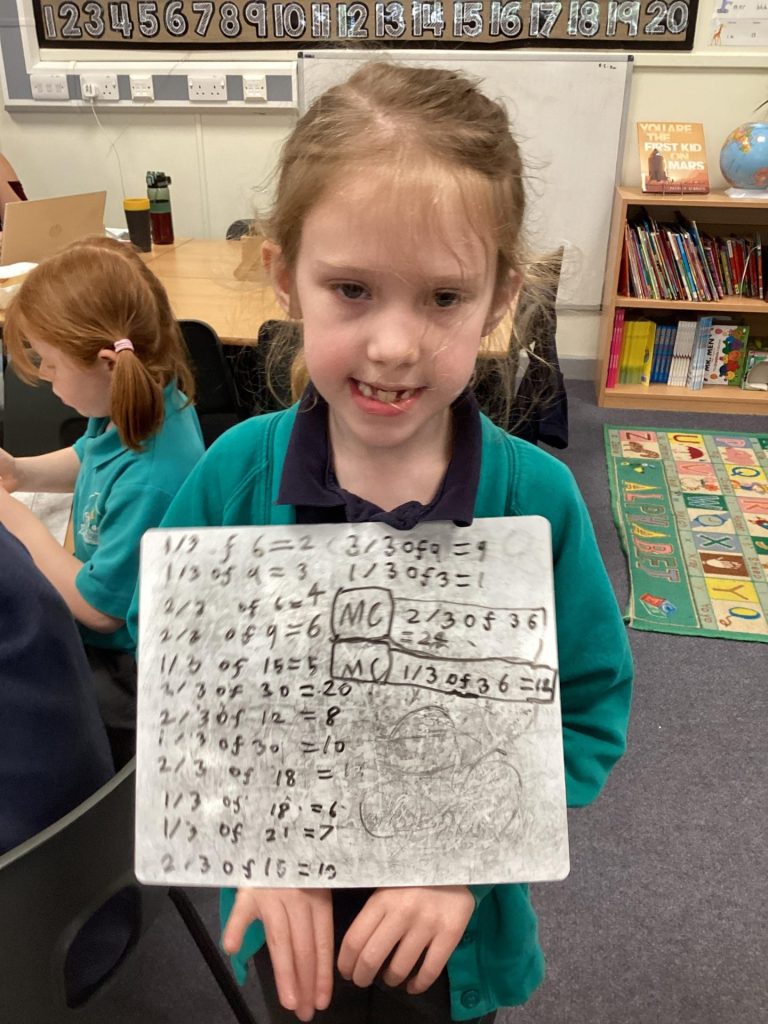 1 2 3 4 5 6 7 8 9 10 11 12 13 14 15 16 17 18 19 20
YOU ARE
THE
FIRST KID
ON
MARS
MR. MEN
ALPHABET
1/3 of 6=2
1/3 of 9=3
2/3 of 6=4
2/3 of 9=6
1/3 of 15=5
2/3 of 30=20
2/3 of 12=8
1/3 of 30=10
2/3 of 18 =
1/3 of 18=6
1/3 of 21=7
2/3 of 15=10
3/3 of 9=9
1/3 of 3=1
MC 2/3 of 36
=24
MC 1/3 of 36=12